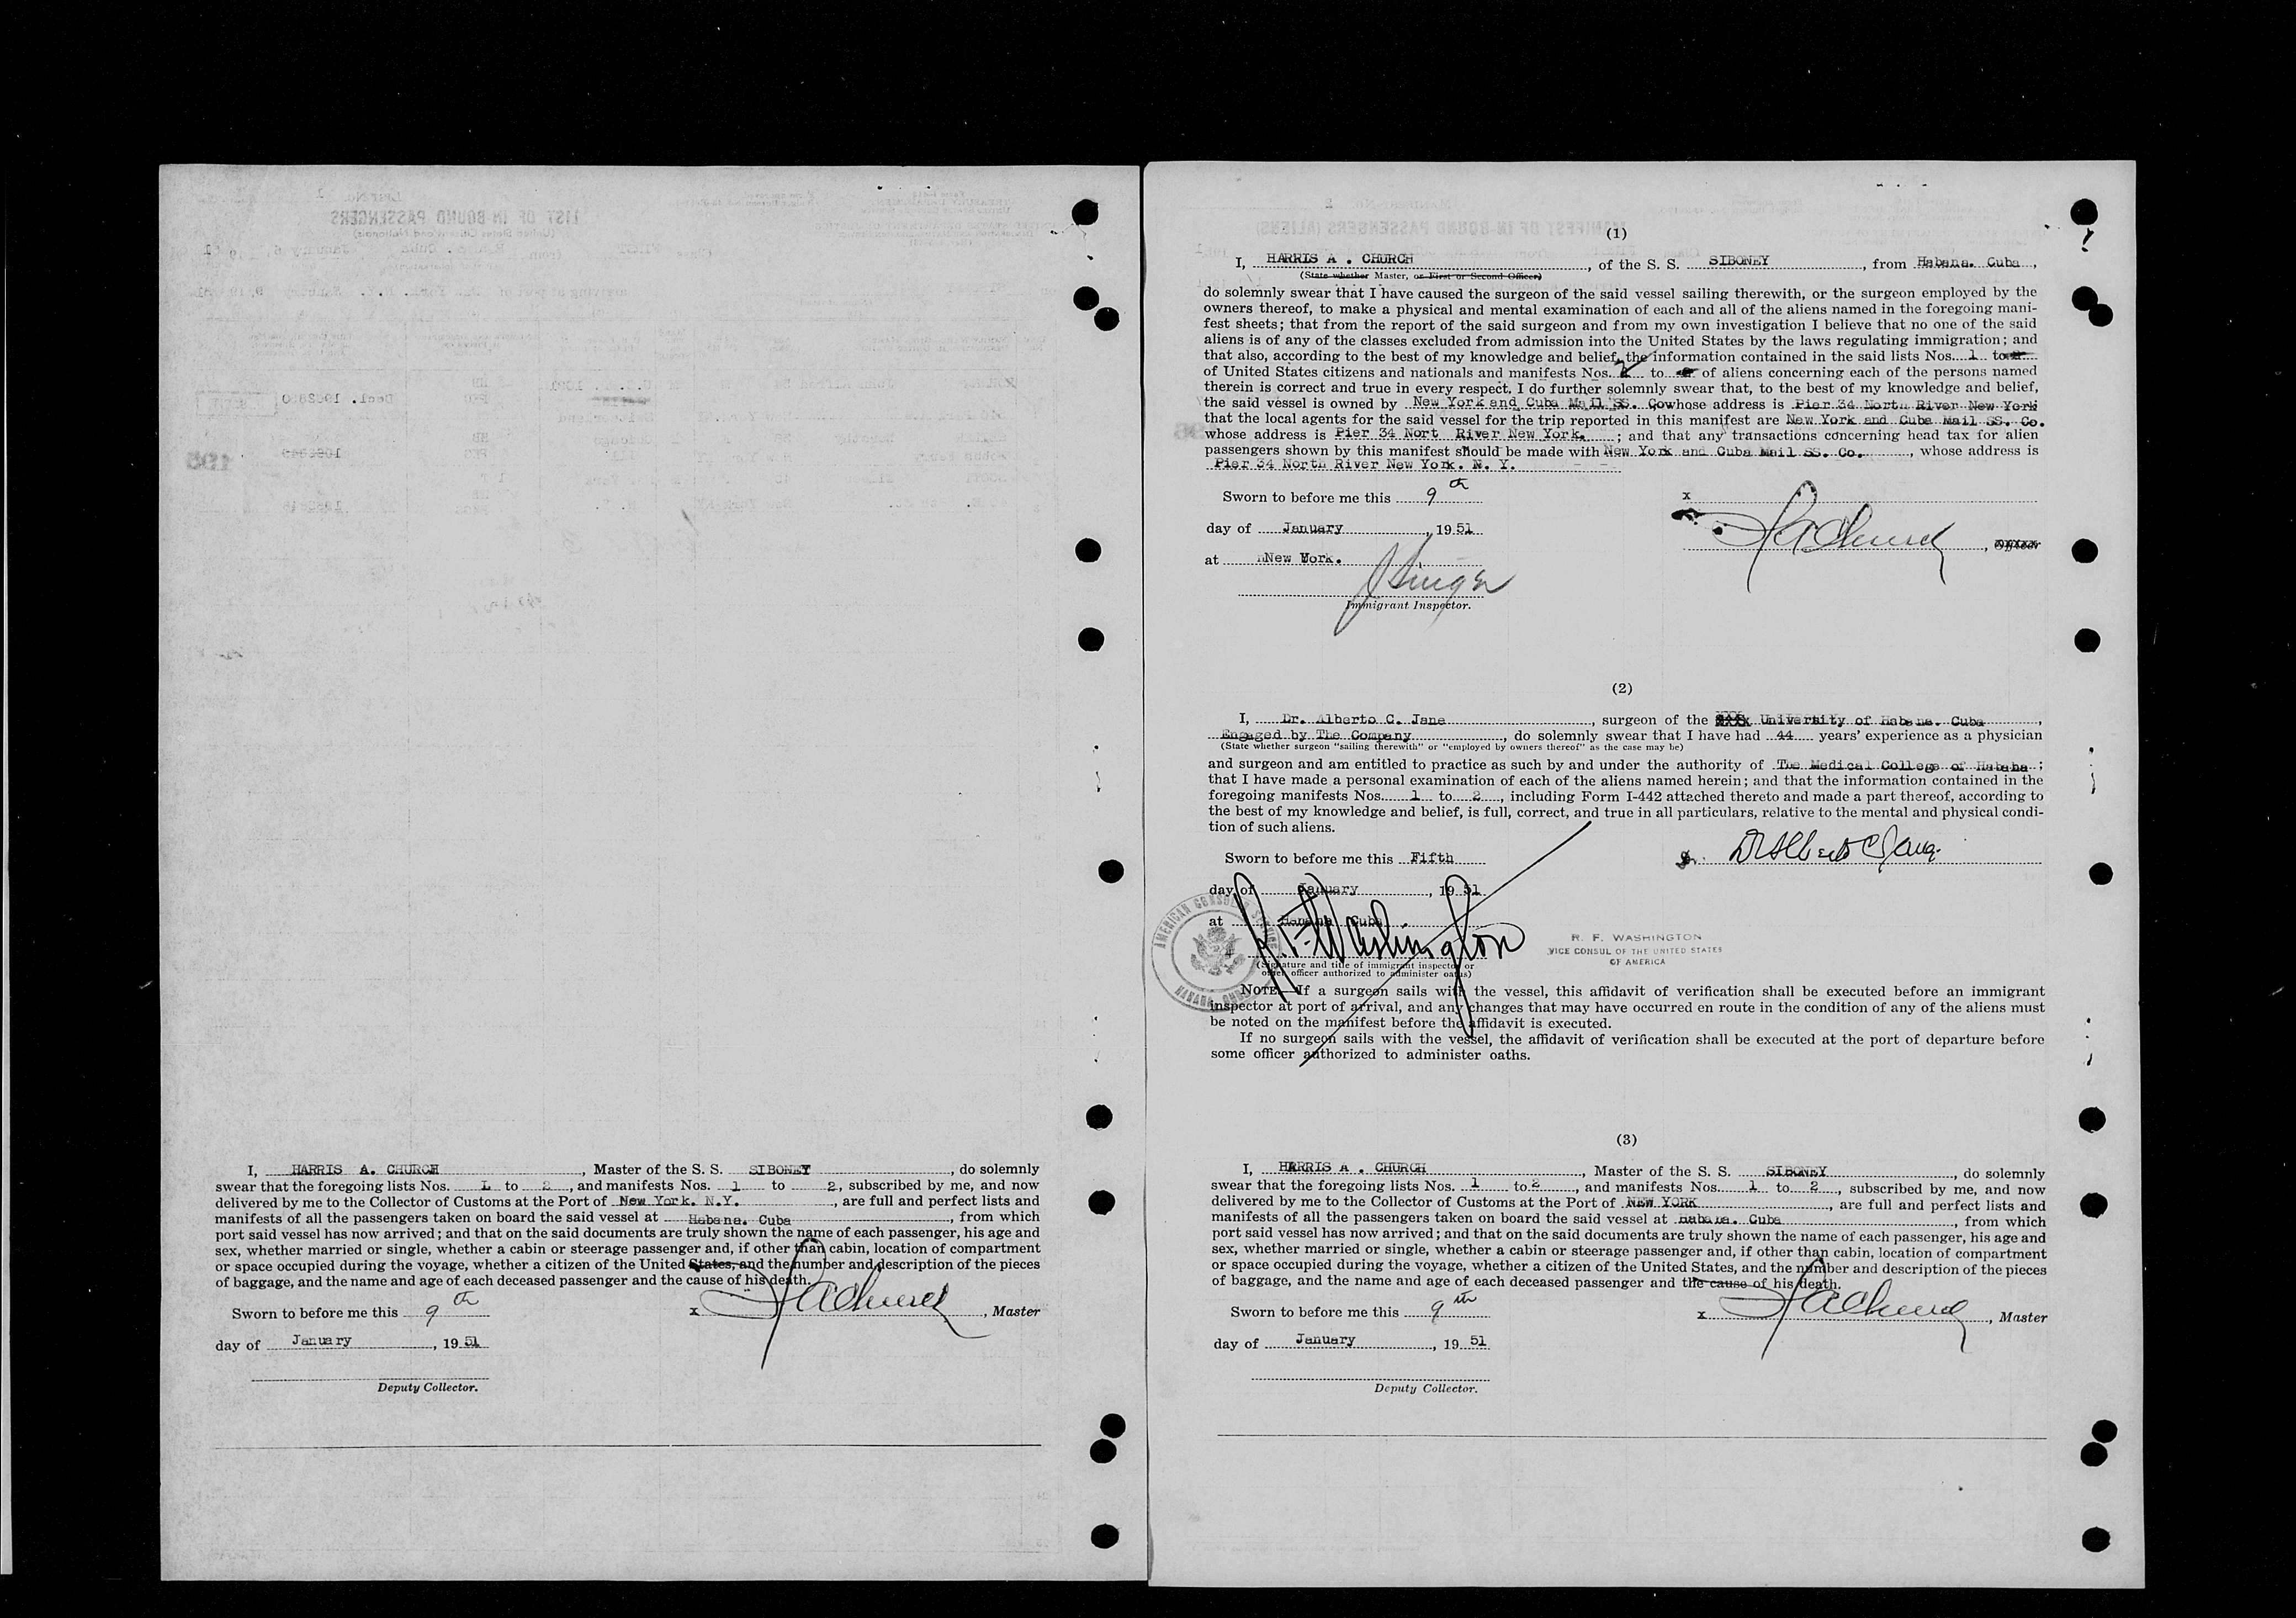 I, HARRIS A. CHURCH, Master of the S. S. SIBONEY, do solemnly
swear that the foregoing lists Nos. 1 to 2, and manifests Nos. 1 to 2, subscribed by me, and now
delivered by me to the Collector of Customs at the Port of New York. N.Y., are full and perfect lists and
manifests of all the passengers taken on board the said vessel at Habana. Cuba, from which
port said vessel has now arrived; and that on the said documents are truly shown the name of each passenger, his age and
sex, whether married or single, whether a cabin or steerage passenger and, if other than cabin, location of compartment
or space occupied during the voyage, whether a citizen of the United States, and the number and description of the pieces
of baggage, and the name and age of each deceased passenger and the cause of his death.
Sworn to before me this 9th
x HAChurch, Master
day of January, 19 51
Deputy Collector.
(1)
I, HARRIS A . CHURCH, of the S. S. SIBONEY, from Habana. Cuba,
(State whether Master, or First or Second Officer)
do solemnly swear that I have caused the surgeon of the said vessel sailing therewith, or the surgeon employed by the
owners thereof, to make a physical and mental examination of each and all of the aliens named in the foregoing mani-
fest sheets; that from the report of the said surgeon and from my own investigation I believe that no one of the said
aliens is of any of the classes excluded from admission into the United States by the laws regulating immigration; and
that also, according to the best of my knowledge and belief, the information contained in the said lists Nos. 1 to
of United States citizens and nationals and manifests Nos. 2 to of aliens concerning each of the persons named
therein is correct and true in every respect. I do further solemnly swear that, to the best of my knowledge and belief,
the said vessel is owned by New York and Cuba Mail SS. Co whose address is Pier 34 North River New York
that the local agents for the said vessel for the trip reported in this manifest are New York and Cuba Mail SS. Co.
whose address is Pier 34 Nort River New York. ; and that any transactions concerning head tax for alien
passengers shown by this manifest should be made with New York and Cuba Mail SS. Co., whose address is
Pier 34 North River New York. N. Y.
Sworn to before me this 9th
x
day of January, 19 51
HAChurch, Officer
at New York.
Immigrant Inspector.
(2)
I, Dr. Alberto C. Jane, surgeon of the University of Habana. Cuba,
Engaged by The Company, do solemnly swear that I have had 44 years' experience as a physician
(State whether surgeon "sailing therewith" or "employed by owners thereof" as the case may be)
and surgeon and am entitled to practice as such by and under the authority of The Medical College of Habana;
that I have made a personal examination of each of the aliens named herein; and that the information contained in the
foregoing manifests Nos. 1 to 2, including Form I-442 attached thereto and made a part thereof, according to
the best of my knowledge and belief, is full, correct, and true in all particulars, relative to the mental and physical condi-
tion of such aliens.
Sworn to before me this Fifth
Dr Alberto C Jane
day of January, 19 51
at Habana Cuba
R. F. Washington
AMERICAN CONSULAR SERVICE
HABANA, CUBA
R. F. WASHINGTON
VICE CONSUL OF THE UNITED STATES
OF AMERICA
(Signature and title of immigrant inspector or
other officer authorized to administer oaths)
NOTE.—If a surgeon sails with the vessel, this affidavit of verification shall be executed before an immigrant
inspector at port of arrival, and any changes that may have occurred en route in the condition of any of the aliens must
be noted on the manifest before the affidavit is executed.
If no surgeon sails with the vessel, the affidavit of verification shall be executed at the port of departure before
some officer authorized to administer oaths.
(3)
I, HARRIS A . CHURCH, Master of the S. S. SIBONEY, do solemnly
swear that the foregoing lists Nos. 1 to 2, and manifests Nos. 1 to 2, subscribed by me, and now
delivered by me to the Collector of Customs at the Port of NEW YORK, are full and perfect lists and
manifests of all the passengers taken on board the said vessel at Habana. Cuba, from which
port said vessel has now arrived; and that on the said documents are truly shown the name of each passenger, his age and
sex, whether married or single, whether a cabin or steerage passenger and, if other than cabin, location of compartment
or space occupied during the voyage, whether a citizen of the United States, and the number and description of the pieces
of baggage, and the name and age of each deceased passenger and the cause of his death.
Sworn to before me this 9th
x HAChurch, Master
day of January, 19 51
Deputy Collector.